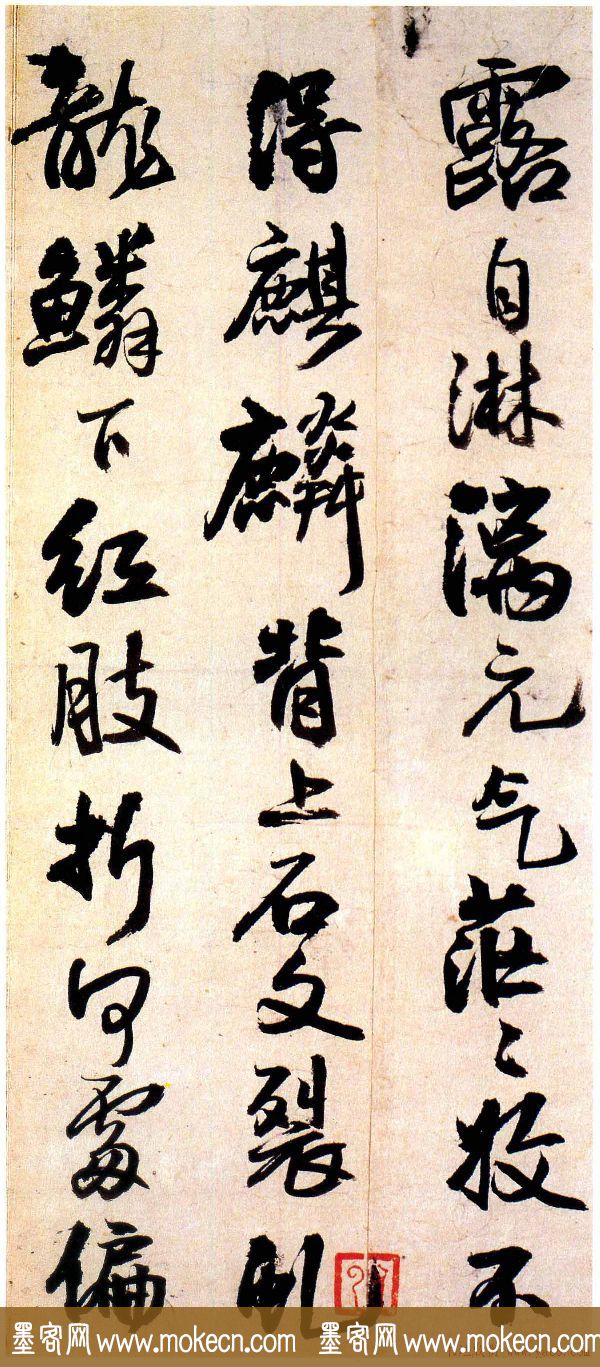 露自淋漓元气茫〻收不
得麒麟背上石文裂虬
龍鱗下紅肢折何處偏
墨客网 www.mokecn.com 墨客网 www.mokecn.com